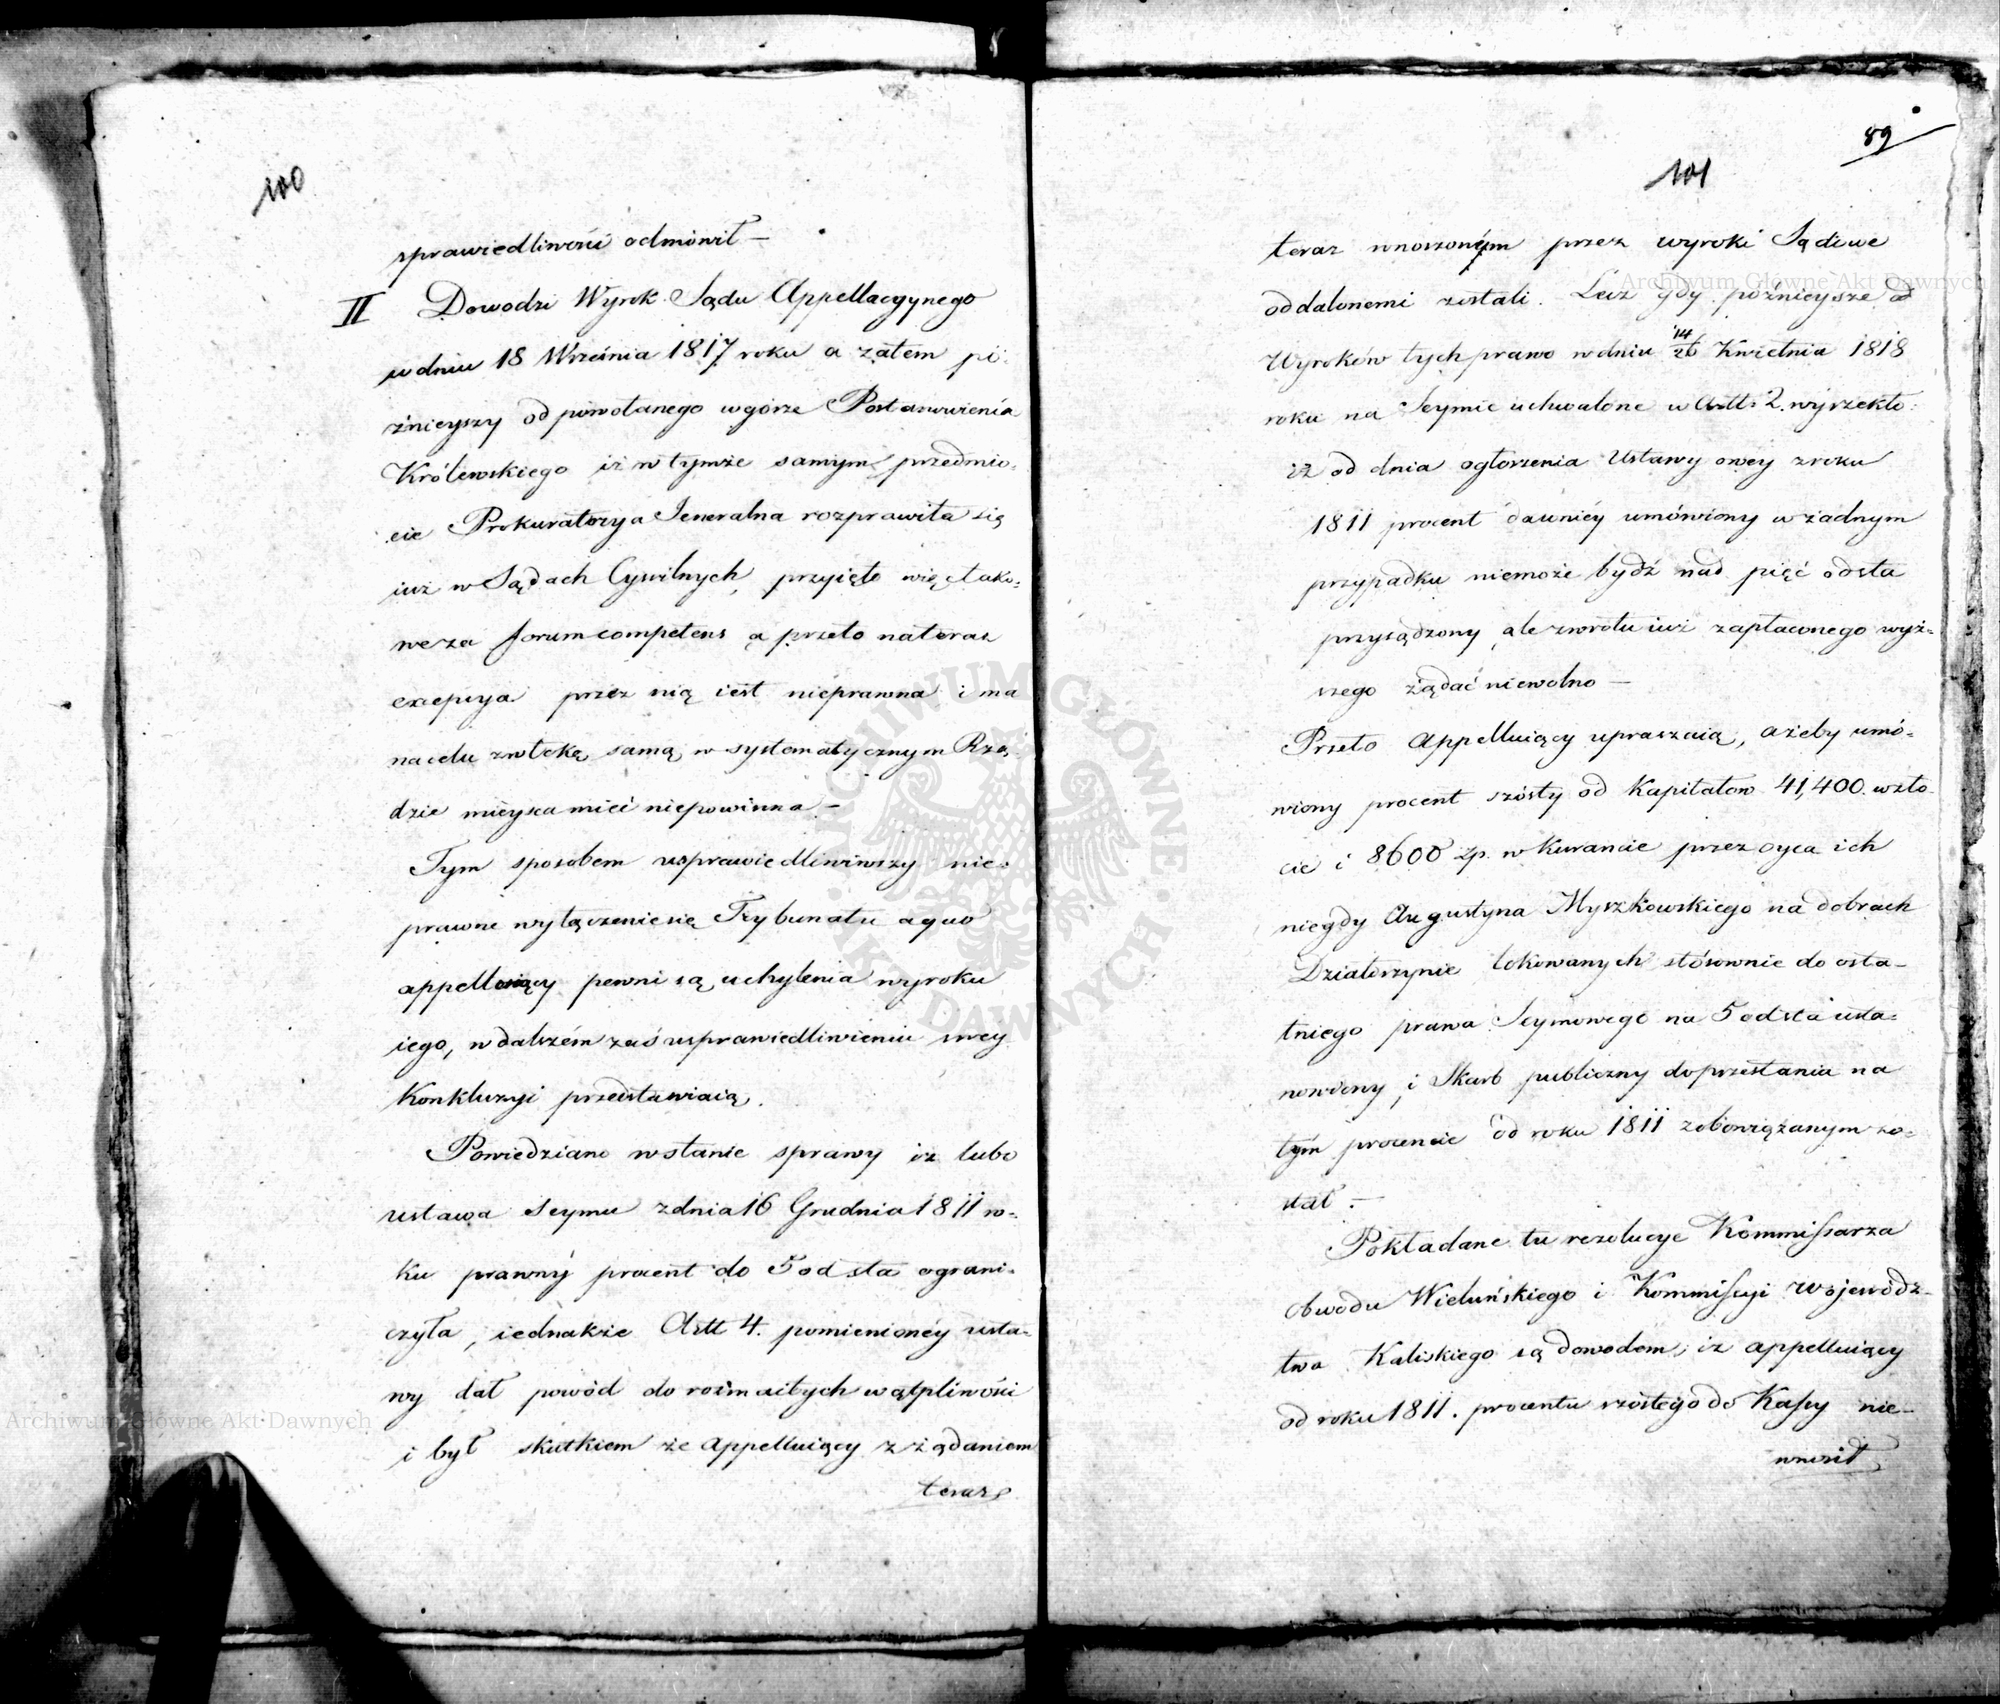 100
sprawiedliwości odmówił —
II Dowodzi Wyrok Sądu Appellacyynego
w dniu 18 Września 1817 roku a zatem pó:
źnieyszy od powołanego wgórze Postanowienia
Królewskiego iż w tymże samym przedmio:
cie Prokuratorya Jeneralna rozprawiła się
iuż w Sądach Cywilnych, przyięto więc tako:
we za forum competens a przeto na teraz
excepcya przez nią iest nieprawna i ma
na celu zwłokę samą w systematycznym Rzą:
dzie mieysca mieć niepowinna —
Tym sposobem usprawiedliwiwszy nie:
prawne wyłączenie się Trybunału a quo
appelluiący pewni są uchylenia wyroku
iego, w dalszém zaś usprawiedliwieniu swey
Konkluzyi przedstawiaią.
Powiedziano w stanie sprawy iż lubo
ustawa Seymu z dnia 16 Grudnia 1811 ro:
ku prawny procent do 5 od sta ograni:
czyła, iednakże Artt 4. pomienionéy usta:
wy dał powód do rozmaitych wątpliwości
i był skutkiem że appelluiący z żądaniem
teraz
89
101
teraz wnoszonym przez wyroki Sądowe
oddalonemi zostali. Lecz gdy poźnieysze od
Wyroków tych prawo w dniu 14/26 Kwietnia 1818
roku na Seymie uchwalone w Artt: 2. wyrzekło:
iż od dnia ogłoszenia Ustawy owey z roku
1811 procent dawniéy umówiony w żadnym
przypadku niemoże bydź nad pięć od sta
przysądzony ale zwrotu iuż zapłaconego wyż:
szego żądać niewolno —
Przeto Appelluiący upraszaią, ażeby umó:
wiony procent szósty od Kapitałów 41,400. w zło:
cie i 8600 zp. w Kurancie przez oyca ich
niegdy Augustyna Myszkowskiego na dobrach
Działoszynie lokowanych stósownie do osta—
tniego prawa Seymowego na 5 od sta usta:
nowiony, i Skarb publiczny do przestania na
tym procencie od roku 1811 zobowiązanym zo:
stał. —
Pokładane tu rezolucye Kommissarza
obwodu Wieluńskiego i Kommissyi Wojewódz:
twa Kaliskiego są dowodem, iż appelluiący
od roku 1811. procentu szóstego do Kassy nie—
wnosił
Archiwum Główne Akt Dawnych
Archiwum Główne Akt Dawnych
ARCHIWUM GŁÓWNE AKT DAWNYCH